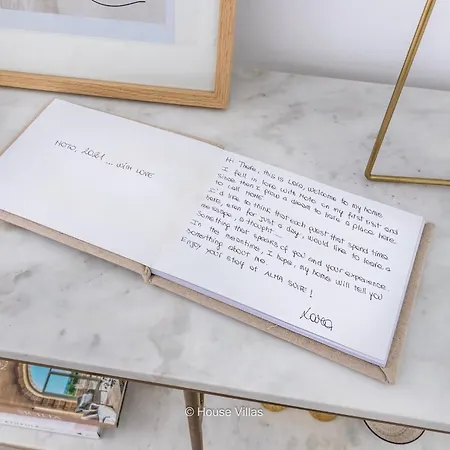 NOTO, 2021 ... WITH LOVE
Hi There, this is Lara, welcome to my home.
I fell in love with Noto on my first visit and
since then I have a dream to have a place here
to call HOME.
I'd like to think that each guest that spend time
here, even for just a day, would like to leave a
message, a thought...
Something that speaks of you and your experience.
In the meantime, I hope, my home will tell you
something about me.
Enjoy your stay at ALMA SUR!
© House Villas